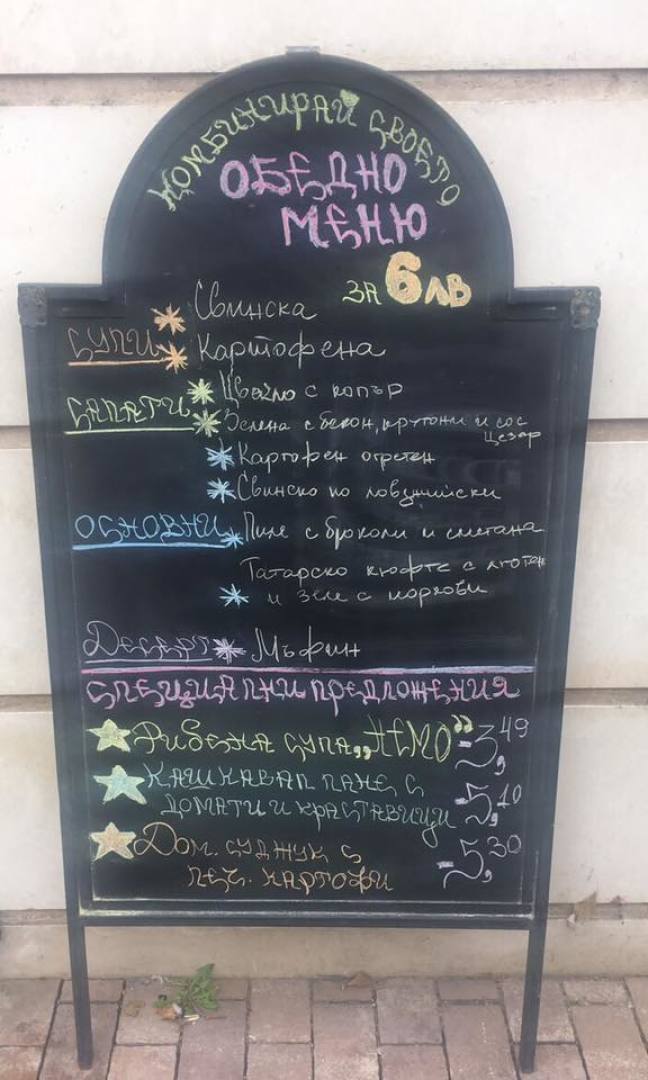 КОМБИНИРАЙ СВОЕТО
ОБЕДНО
МЕНЮ
ЗА 6 ЛВ
СУПИ
Свинска
Картофена
САЛАТИ
Цвекло с копър
Зелена с бекон, крутони и сос
Цезар
ОСНОВНИ
Картофен огретен
Свинско по ловджийски
Пиле с броколи и сметана
Татарско кюфте с
и зеле с моркови
Десерт
Мъфин
СПЕЦИАЛНИ ПРЕДЛОЖЕНИЯ
Рибена супа „НЕМО“ - 3,49
Кашкавал пане с
домати и краставици - 5,10
Дом. суджук с
печ. картофи - 5,30